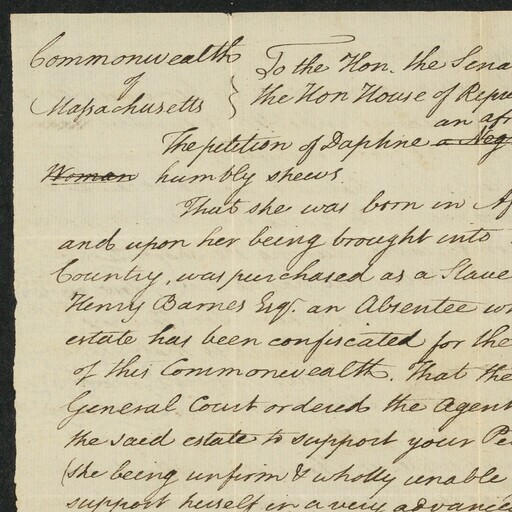 Commonwealth
of
Massachusetts }
To the Hon. the Sena
the Hon House of Repre
an afr
The petition of Daphne a Neg
Woman humbly shews
That she was born in Af
and upon her being brought into
Country, was purchased as a Slave
Henry Barnes Esqr. an Absentee wh
estate has been confiscated for the
of this Commonwealth. That the
General Court ordered the Agent
the said estate to support your Pe
(she being unfirm & wholly unable
support herself in a very advanced